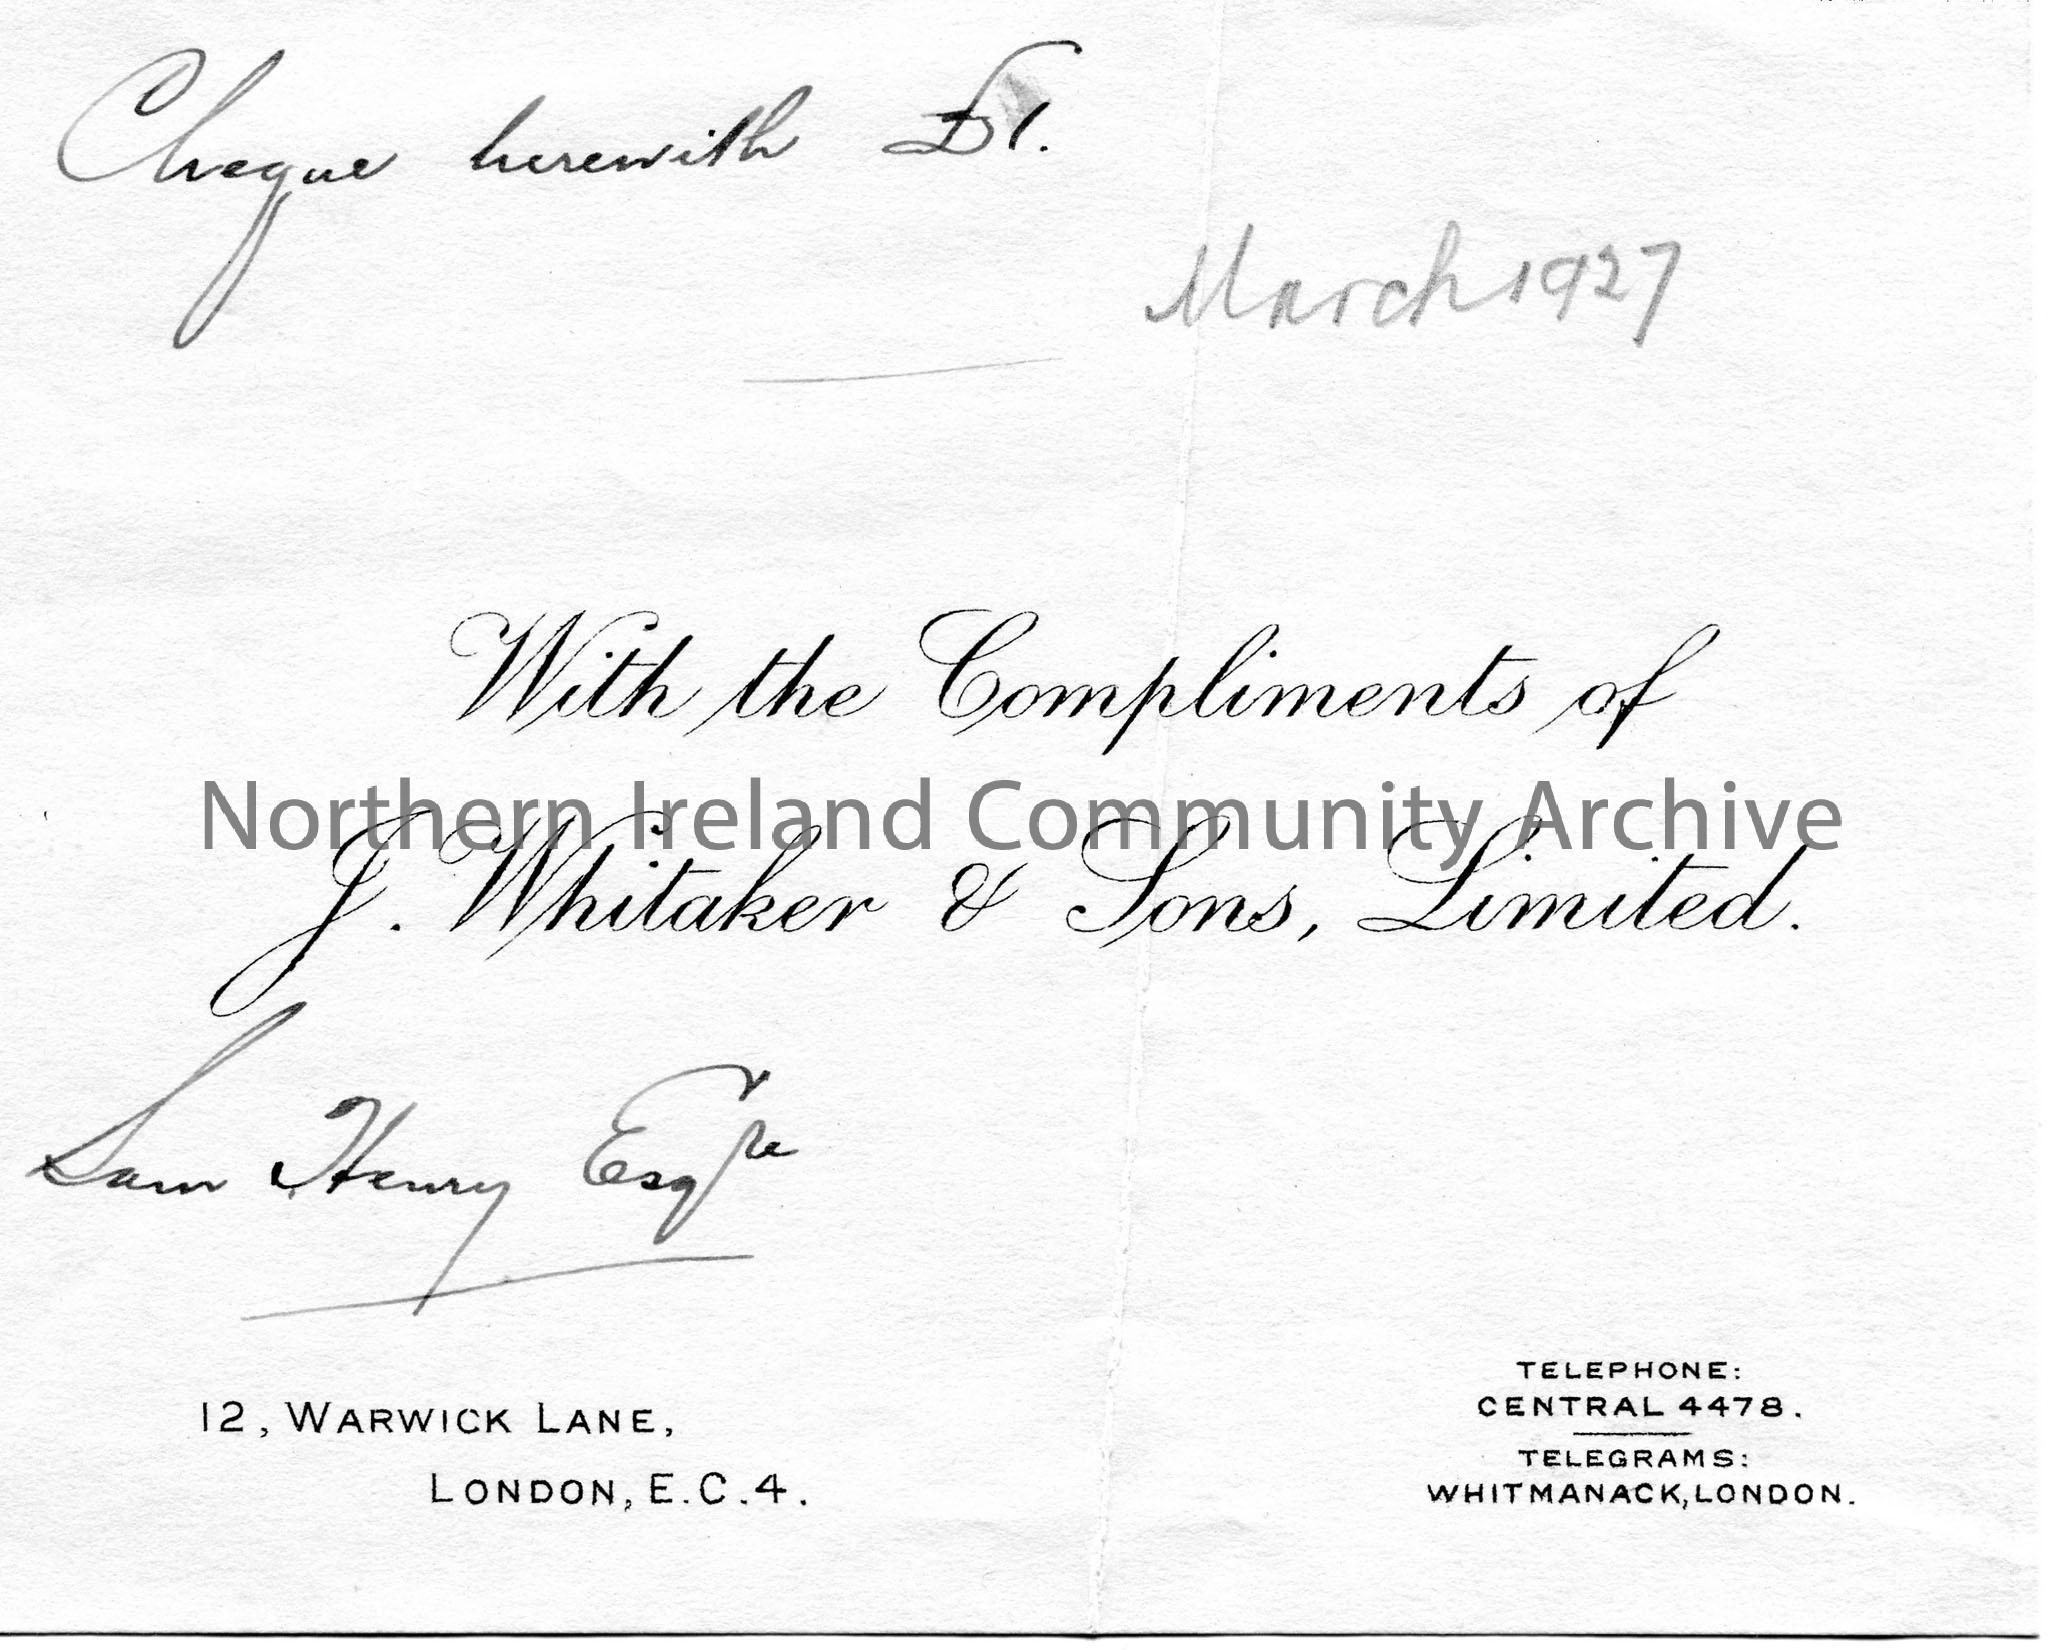 Cheque herewith £1.
March 1927
With the Compliments of
Northern Ireland Community Archive
J. Whitaker & Sons, Limited.
Sam Henry Esqre
12, WARWICK LANE,
LONDON, E.C.4.
TELEPHONE:
CENTRAL 4478.
TELEGRAMS:
WHITMANACK, LONDON.